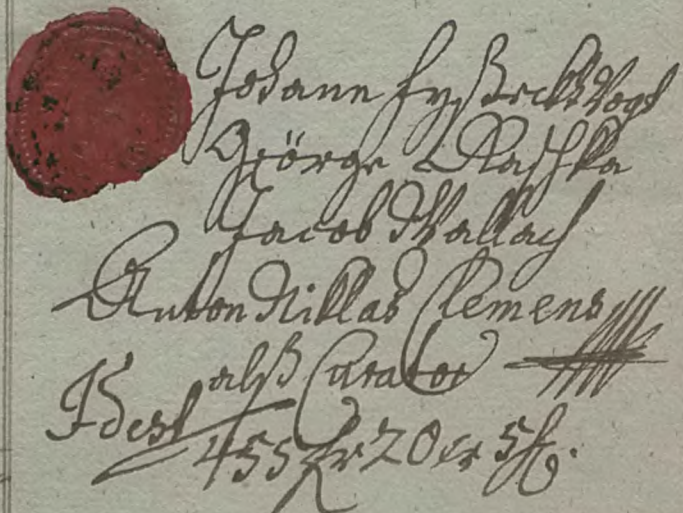 Johann Hyßeck Vogt
George Raschka
Jacob Wallach
Anton Niklas Clemens
alß Curator
Idest 455 fr 20 xr 5 h.